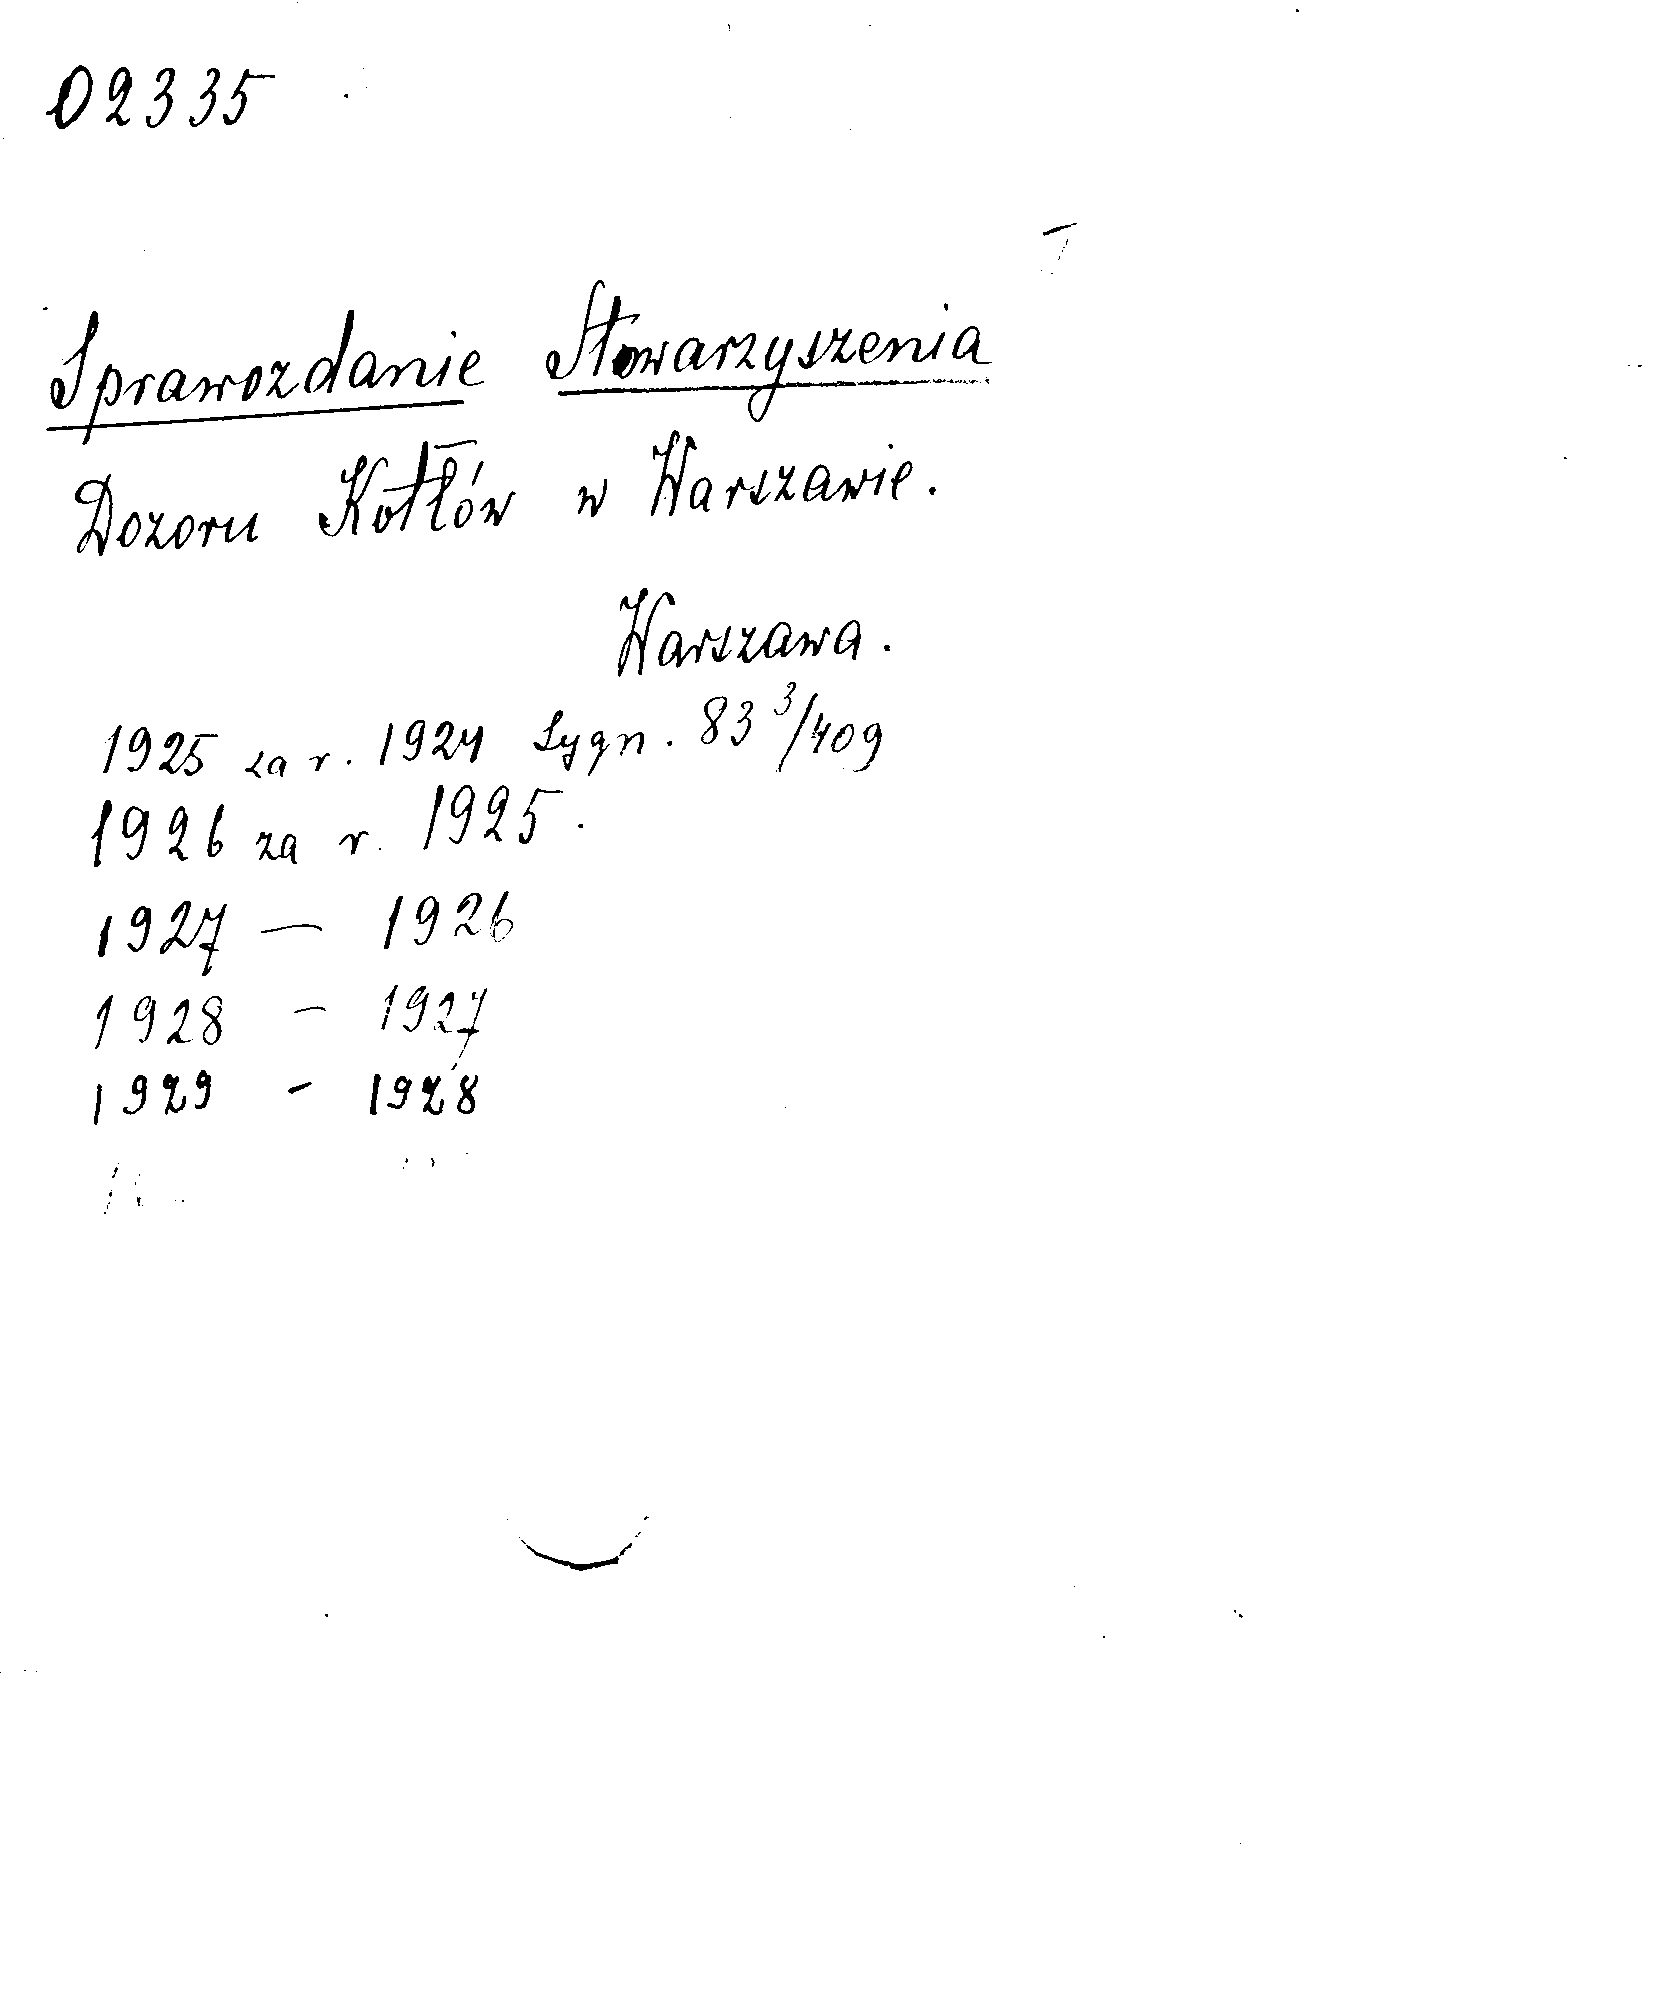 02335
Sprawozdanie Stowarzyszenia
Dozoru Kotłów w Warszawie.
Warszawa.
1925 za r. 1924 Sygn. 83³/409
1926 za r. 1925.
1927 — 1926
1928 - 1927
1929 - 1928